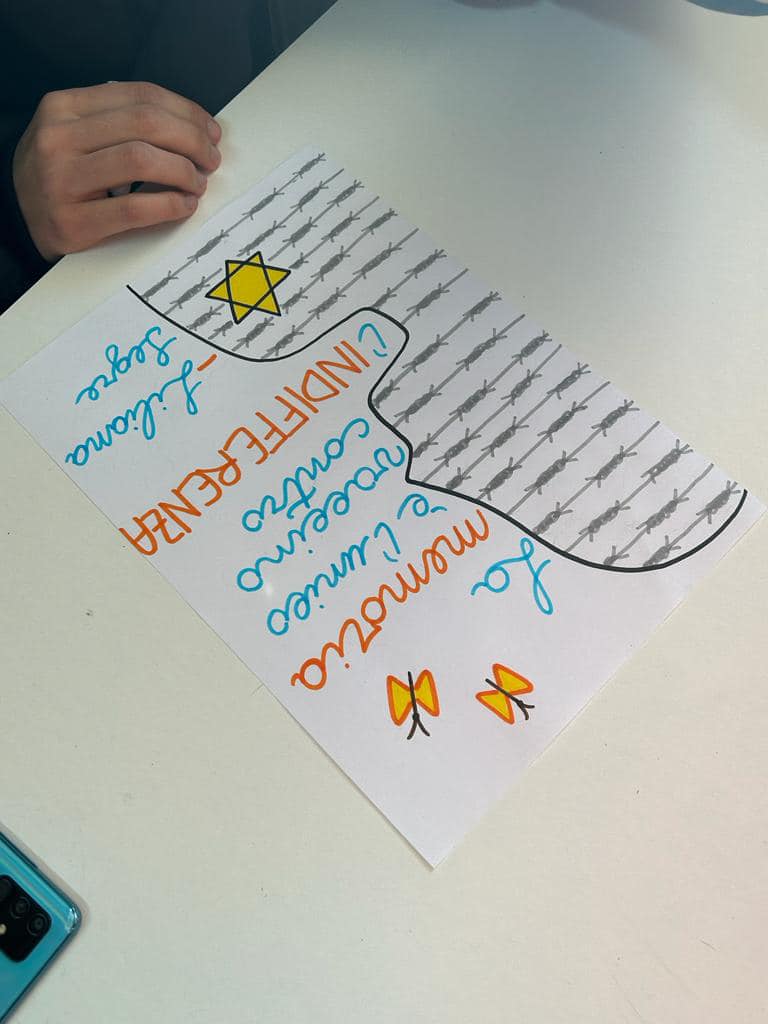 La
memoria
è l'unico
vaccino
contro
L'INDIFFERENZA
- Liliana
Segre